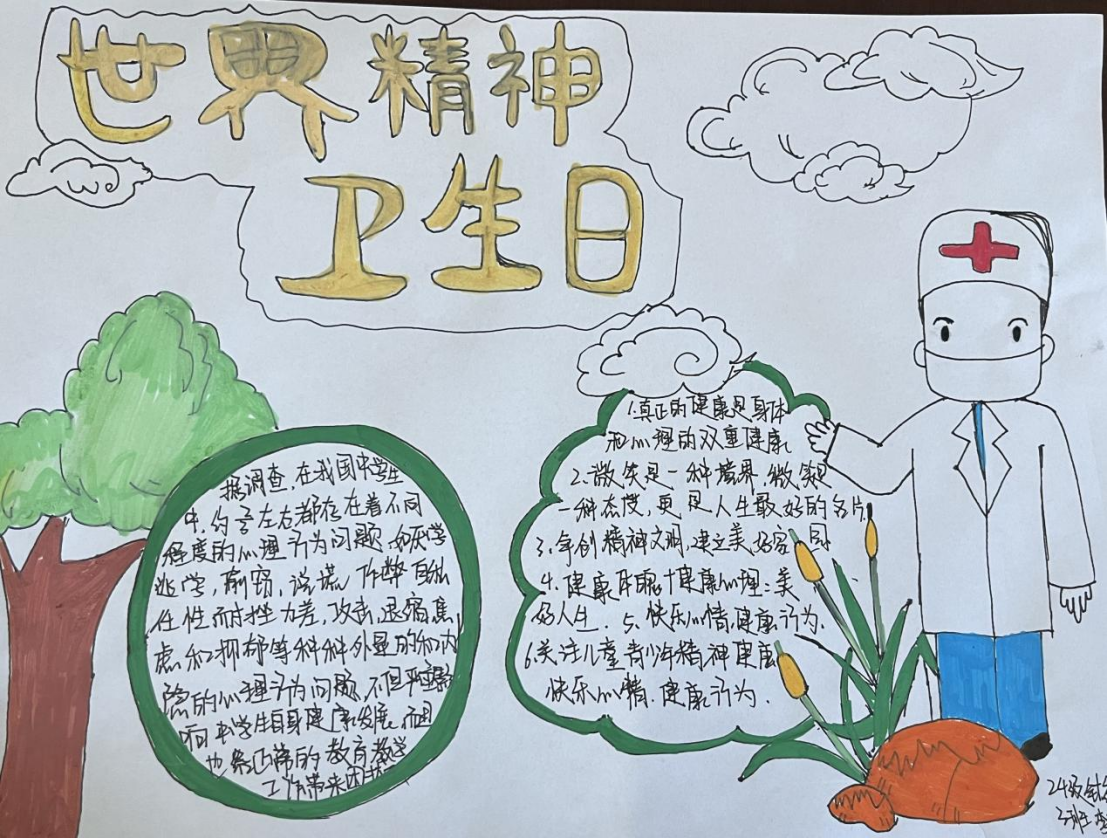 世界精神
卫生日
据调查，在我国中学生
中，约 左右都存在着不同
程度的心理行为问题 如厌学
逃学，说谎，作弊 自私
任性 耐挫力差，攻击，退缩，焦
虑和抑郁等种种外显的和内
隐的心理行为问题，不但严重影
响中学生自身健康发展，而且
也 正常的教育教学
工作带来困扰
1.真正的健康是身体
和心理的双重健康
2.微笑是一种境界，微笑是
一种态度，更是人生最好的名片
3.争创精神文明，建立美好家园
4.健康 +健康心理：美
好人生．5．快乐心情，健康行为．
6.关注儿童青少年精神健康
快乐心情．健康行为．
24级
3班